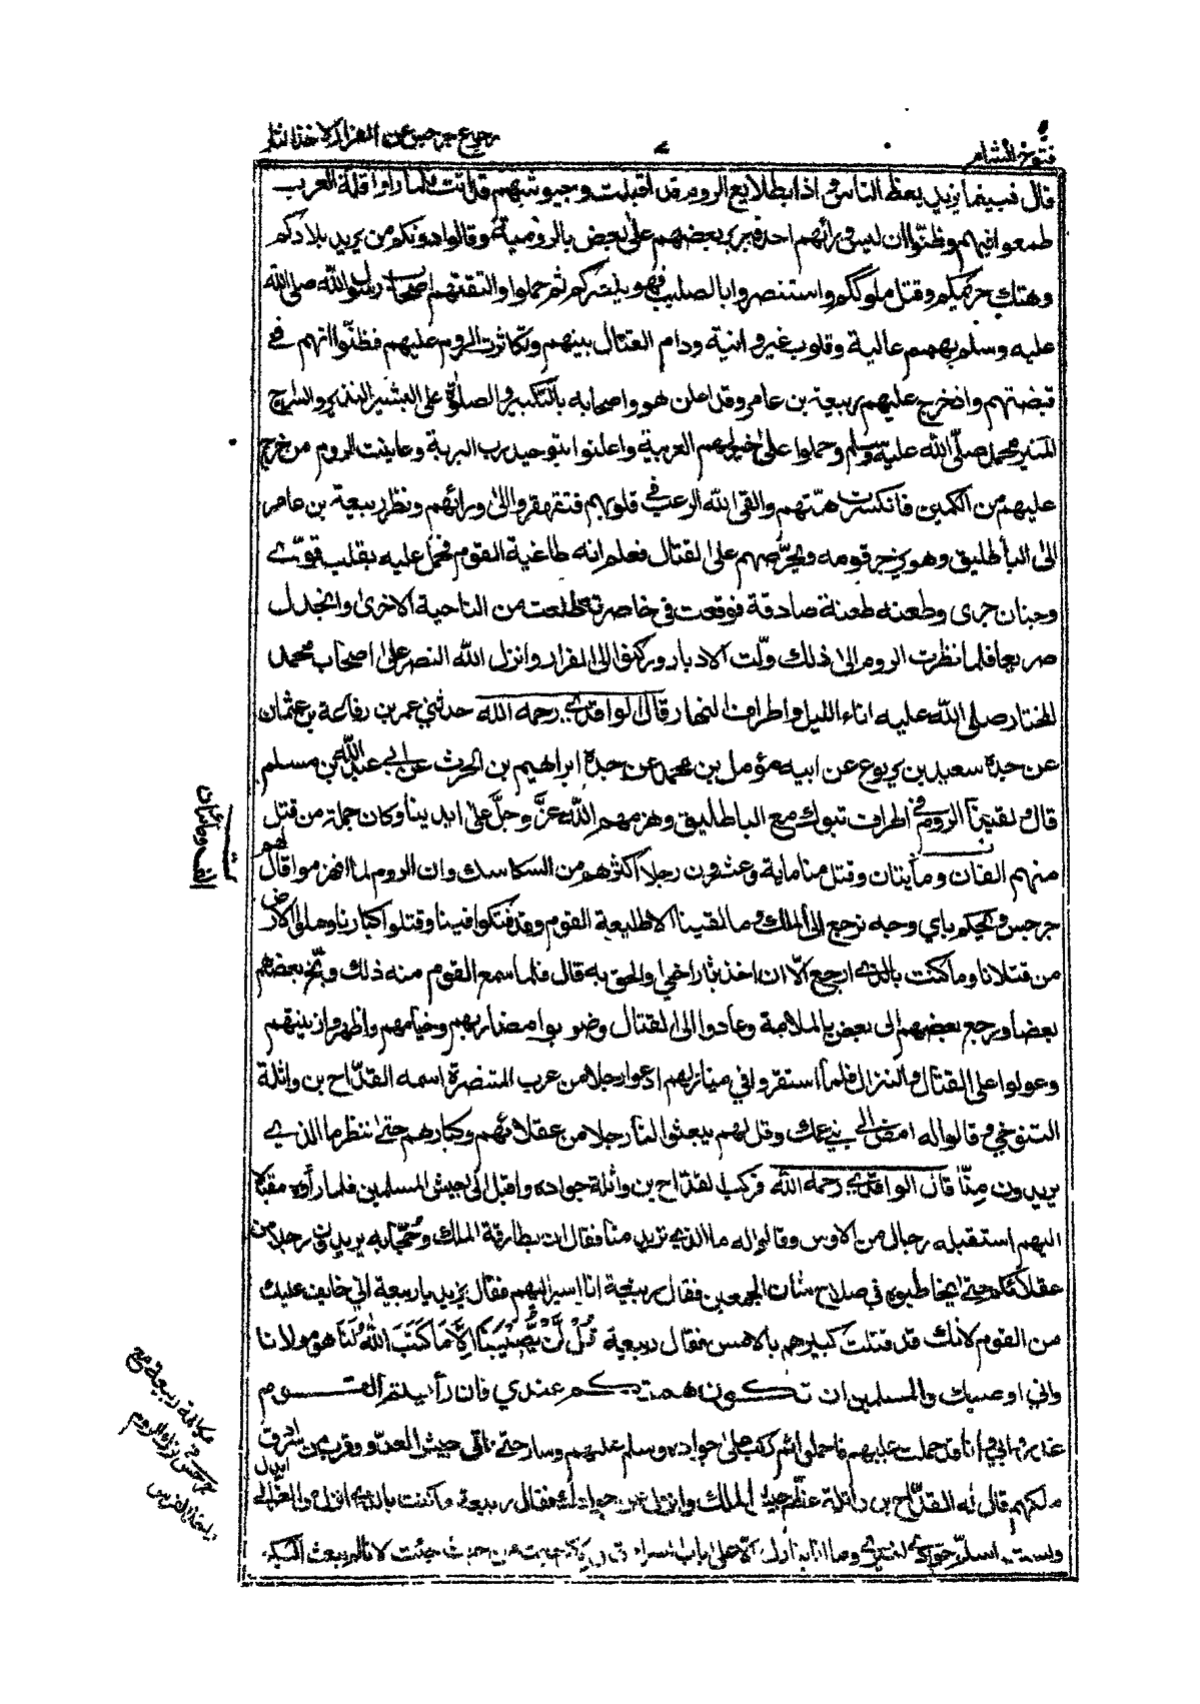 فتوح الشام
رجوع جرجيس عن الفرار لاخذ الثار
قال فبينما يزيد يعظ الناس و اذا بطلايع الروم قد اقبلت وجيوشهم قد اتت فلما راوا قلة العرب
طمعوا فيهم وظنوا ان ليس ورائهم احد فبربر بعضهم على بعض بالرومية وقالوا دونكم من يريد بلادكم
وهتك حريمكم وقتل ملوككم واستنصروا بالصليب فهو ينصركم ثم حملوا والتقتهم اصحاب رسول الله صلى الله
عليه وسلم بهمم عالية وقلوب غير وانية ودام القتال بينهم وتكاثرت الروم عليهم فظنّوا انهم في
قبضتهم واذ خرج عليهم ربيعة بن عامر وقد اعلن هو واصحابه بالتكبير والصلوة على البشير النذير والسراج
المنير محمد صلّى الله عليه وسلم وحملوا على خيولهم العربية واعلنوا بتوحيد رب البرية وعاينت الروم من خرج
عليهم من الكمين فانكسرت همّتهم والقى الله الرعب في قلوبهم فتقهقروا الى ورائهم ونظر ربيعة بن عامر
الى الباطليق وهو يزجر قومه ويحرّضهم على القتال فعلم انه طاغية القوم فحمل عليه بقلب قويّ
وجنان جرى وطعنه طعنة صادقة فوقعت في خاصرته طلعت من الناحية الاخرى وانجدل
صريعا فلما نظرت الروم الى ذلك ولّت الادبار وركنوا الى الفرار وانزل الله النصر على اصحاب محمد
المختار صلى الله عليه اناء الليل واطراف النهار قال الواقدي رحمه الله حدثني عمر بن رفاعة بن عثمان
عن جده سعيد بن يربوع عن ابيه مؤمل بن محمد عن جده ابراهيم بن الحرث عن ابي عبد الله بن مسلم
قال لقينا الروم في اطراف تبوك مع الباطليق وهزمهم الله عزّ وجلّ على ايدينا وكان جملة من قتل
منهم الفان ومأيتان وقتل منا ماية وعشرون رجلا اكثرهم من السكاسك وان الروم لما انهزموا قال لهم
جرجيس ويحكم باي وجه نرجع الى الملك وما لقينا الا طليعة القوم وقد فتكوا فينا وقتلوا كبارنا وملوا الارض
من قتلانا وما كنت بالذي ارجع الّا ان اخذ بثار اخي والحق به قال فلما سمع القوم منه ذلك وبّخ بعضهم
بعضا ورجع بعضهم الى بعض بالملامة وعادوا الى القتال وضربوا مضاربهم وخيامهم واظهروا زينتهم
وعولوا على القتال والنزال فلما استقروا في منازلهم ادعوا رجلا من عرب المتنصرة اسمه القدّاح بن واثلة
التنوخي وقالوا له امض الى بني عمك وقل لهم يبعثوا لنا رجلا من عقلائهم وكبارهم حتى ننظر ما الذي
يريدون منّا قال الواقدي رحمه الله فركب القدّاح بن واثلة جواده واقبل الى جيش المسلمين فلما راوه مقبلا
اليهم استقبله رجال من الاوس وقالوا له ما الذي تريد منا فقال ان بطارقة الملك وحجّابه يريدون رجلا من
عقلائكم حتى يخاطبوه في صلاح شان الجمعين فقال ربيعة انا اسير اليهم فقال يزيد يا ربيعة اني خايف عليك
من القوم لانك قد قتلت كبيرهم بالامس فقال ربيعة قُلْ لَّنْ يُّصِيْبَنَا اِلَّا مَا كَتَبَ اللهُ لَنَا هو مولانا
واني اوصيك والمسلمين ان تكون همتكم عندي فان رأيتم القوم
غدروا بي وانا قد حملت عليهم فاحملوا ثم ركب على جواده وسلم عليهم وسار حتى لاقى جيش العدو وقرب من سرادق
ملكهم قال له القدّاح بن واثلة عظّم جيش الملك وانزل عن جوادك فقال ربيعة ما كنت بالذي انزل
الف ومأيتان
مكالمة ربيعة مع